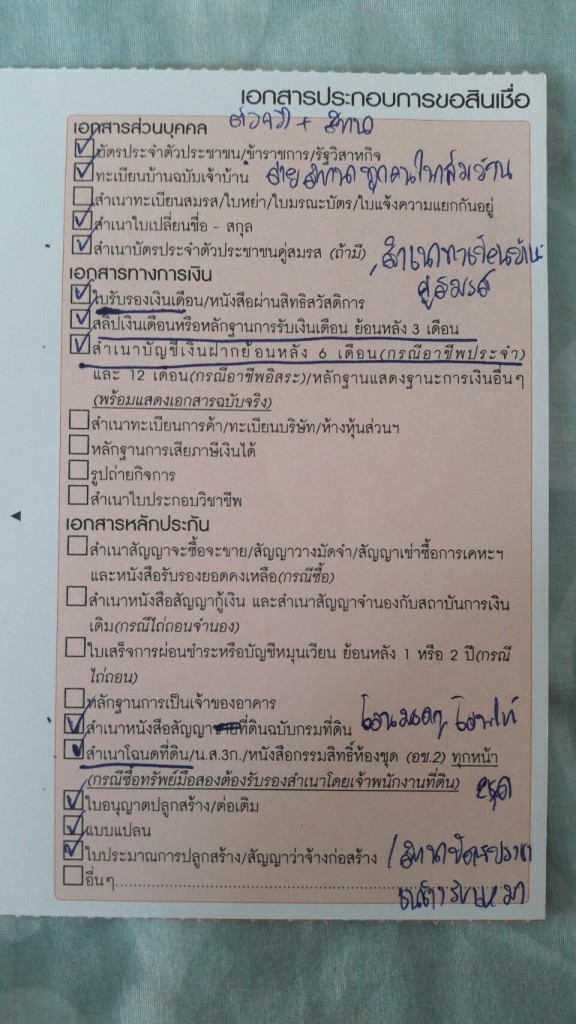 เอกสารประกอบการขอสินเชื่อ
ตัวจริง + สำเนา
เอกสารส่วนบุคคล
บัตรประจำตัวประชาชน/ข้าราชการ/รัฐวิสาหกิจ
ทะเบียนบ้านฉบับเจ้าบ้าน ถ่ายสำเนาทุกคนในทะเบียนบ้าน
สำเนาทะเบียนสมรส/ใบหย่า/ใบมรณะบัตร/ใบแจ้งความแยกกันอยู่
สำเนาใบเปลี่ยนชื่อ - สกุล
สำเนาบัตรประจำตัวประชาชนคู่สมรส (ถ้ามี) , สำเนาทะเบียนบ้าน
คู่สมรส
เอกสารทางการเงิน
ใบรับรองเงินเดือน/หนังสือผ่านสิทธิสวัสดิการ
สลิปเงินเดือนหรือหลักฐานการรับเงินเดือน ย้อนหลัง 3 เดือน
สำเนาบัญชีเงินฝากย้อนหลัง 6 เดือน(กรณีอาชีพประจำ)
และ 12 เดือน(กรณีอาชีพอิสระ)/หลักฐานแสดงฐานะการเงินอื่นๆ
(พร้อมแสดงเอกสารฉบับจริง)
สำเนาทะเบียนการค้า/ทะเบียนบริษัท/ห้างหุ้นส่วนฯ
หลักฐานการเสียภาษีเงินได้
รูปถ่ายกิจการ
สำเนาใบประกอบวิชาชีพ
เอกสารหลักประกัน
สำเนาสัญญาจะซื้อจะขาย/สัญญาวางมัดจำ/สัญญาเช่าซื้อการเคหะฯ
และหนังสือรับรองยอดคงเหลือ(กรณีซื้อ)
สำเนาหนังสือสัญญากู้เงิน และสำเนาสัญญาจำนองกับสถาบันการเงิน
เดิม(กรณีไถ่ถอนจำนอง)
ใบเสร็จการผ่อนชำระหรือบัญชีหมุนเวียน ย้อนหลัง 1 หรือ 2 ปี(กรณี
ไถ่ถอน)
หลักฐานการเป็นเจ้าของอาคาร
สำเนาหนังสือสัญญา ที่ดินฉบับกรมที่ดิน
สำเนาโฉนดที่ดิน/น.ส.3ก./หนังสือกรรมสิทธิ์ห้องชุด (อช.2) ทุกหน้า
(กรณีซื้อทรัพย์มือสองต้องรับรองสำเนาโดยเจ้าพนักงานที่ดิน)
ใบอนุญาตปลูกสร้าง/ต่อเติม
แบบแปลน
ใบประมาณการปลูกสร้าง/สัญญาว่าจ้างก่อสร้าง
อื่นๆ